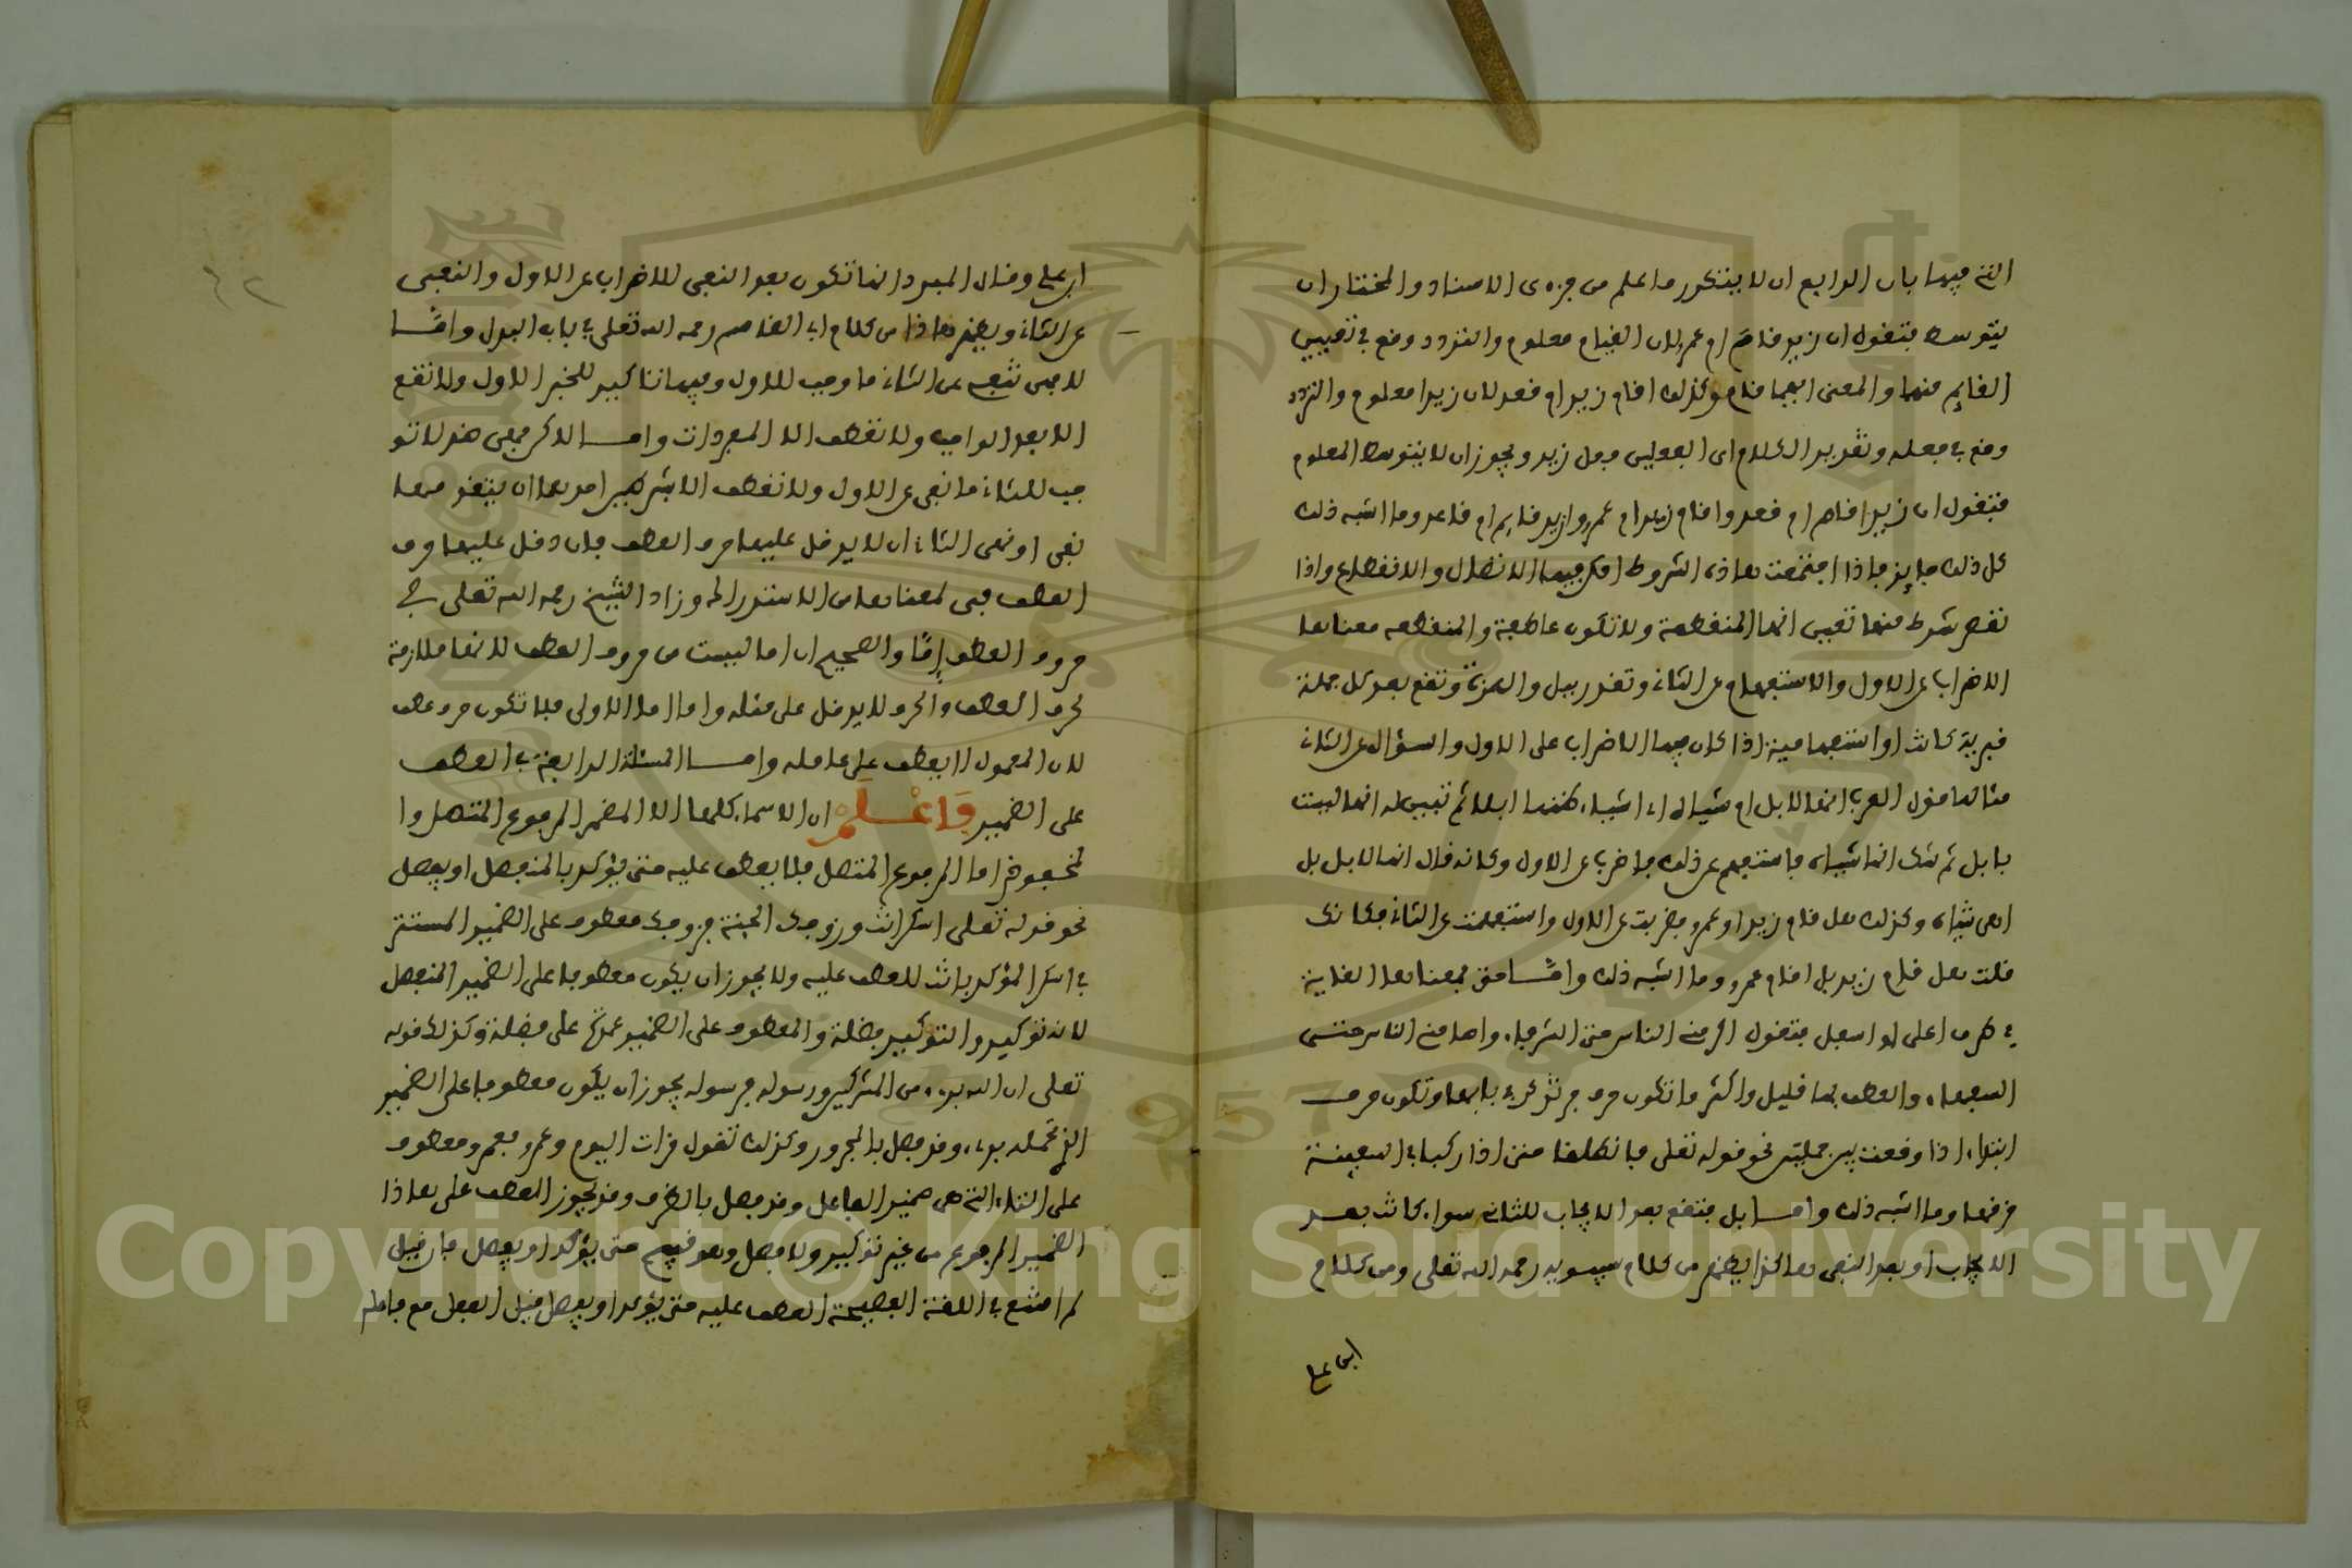 التي فيها بان الرابع ان لا يتكرر ما علم من جزءى الاسناد والمختار ان
يتوسط فتقول ان زيد قام ام عمر لان القيام معلوم والتردد وقع في تعيين
القايم منهما والمعنى ايهما قام وكذلك اقام زيد ام قعد لان زيدا معلوم والتردد
وقع في فعله وتقدير الكلام اى الفعلين فعل زيد ويجوز ان لا يتوسط المعلوم
فتقول ان زيدا قام ام قعد واقام زيد ام عمرو وازيد قايم ام قاعد وما اشبه ذلك
كل ذلك جايز فاذا اجتمعت هاذه الشروط امكن فيها الاتصال والانفصال واذا
نقص شرط منها تعين انها المنقطعة ولا تكون عاطفة والمنقطعه معناها
الاضراب عن الاول والاستفهام عن الثاني وتقدر ببل والهمزة وتقع بعد كل جملة
خبرية كانت او استفهامية اذا كان فيها الاضراب على الاول والسؤال عن الثاني
مثالها قول العرب انها لابل ام شياه اي اشياء ظنها ابلا ثم تبين له انها ليست
بابل ثم شك انها شياه فاستفهم عن ذلك فاضرب عن الاول وكانه قال انها لابل بل
اهي شياه وكذلك هل قام زيد او عمرو فضربت عن الاول واستفهمت عن الثاني فكانك
قلت هل قام زيد بل اقام عمرو وما اشبه ذلك واما حتى فمعناها الغاية
في طرف اعلى او اسفل فتقول اكرمني الناس حتى الشرفاء واهانني الناس حتى
السفهاء والعطف بها قليل واكثر ما تكون حرف جر تذكر في بابها وتكون حرف
ابتداء اذا وقعت بين جملتين نحو قوله تعلى فانطلقا حتى اذا ركبا في السفينة
خرقها وما اشبه ذلك واما بل فتقع بعد الايجاب للثاني سواء كانت بعد
الايجاب او بعد النفي هاكذا يظهر من كلام سيبويه رحمه الله تعلى ومن كلام
ابى على
٤٢
ابى على وقال المبرد انما تكون بعد النفي للاضراب عن الاول والنفي
عن الثاني ويظهر هاذا من كلام ابى القاسم رحمه الله تعلى في باب البدل واما
لا فهى تنفى عن الثاني ما وجب للاول وفيها تاكيد للخبر الاول ولا تقع
الا بعد الواجب ولا تعطف الا المفردات واما لاكن فهى ضد لا تو
جب للثاني ما نفى عن الاول ولا تعطف الا بشرطين احدهما ان يتقدمها
نفى او نهى الثاني ان لا يدخل عليها حرف العطف فان دخل عليها حرف
العطف فهى لمعناها من الاستدراك وزاد الشيخ رحمه الله تعلى في
حروف العطف إمّا والصحيح ان اما ليست من حروف العطف لانها ملازمة
لحرف العطف والحرف لا يدخل على مثله واما اما الاولى فلا تكون حرف عطف
لان المعمول لا يعطف على عامله واما المسئلة الرابعة في العطف
على الضمير فَاعْلَمْ ان الاسماء كلها الا المضمر المرفوع المتصل وا
لمخفوض اما المرفوع المتصل فلا يعطف عليه حتى يؤكد بالمنفصل او يفصل
نحو قوله تعلى اسكن انت وزوجك الجنة فزوجك معطوف على الضمير المستتر
في اسكن المؤكد بانت للعطف عليه ولا يجوز ان يكون معطوفا على الضمير المنفصل
لانه توكيد والتوكيد فضلة والمعطوف على الضمير عمدة على فضلة وكذلك قوله
تعلى ان الله برىء من المشركين ورسوله فرسوله يجوز ان يكون معطوفا على الضمير
الذي تحمله برىء وقد فصل بالمجرور وكذلك تقول قرات اليوم وعمرو فعمرو معطوف
على التاء التي هى ضمير الفاعل وقد فصل بالظرف وقد يجوز العطف على هاذا
الضمير المرفوع من غير توكيد ولا فصل وهو قبيح حتى يؤكد او يفصل فان قيل
لم امتنع في اللغة الفصيحة العطف عليه حتى يؤكد او يفصل قيل الفعل مع فاعله